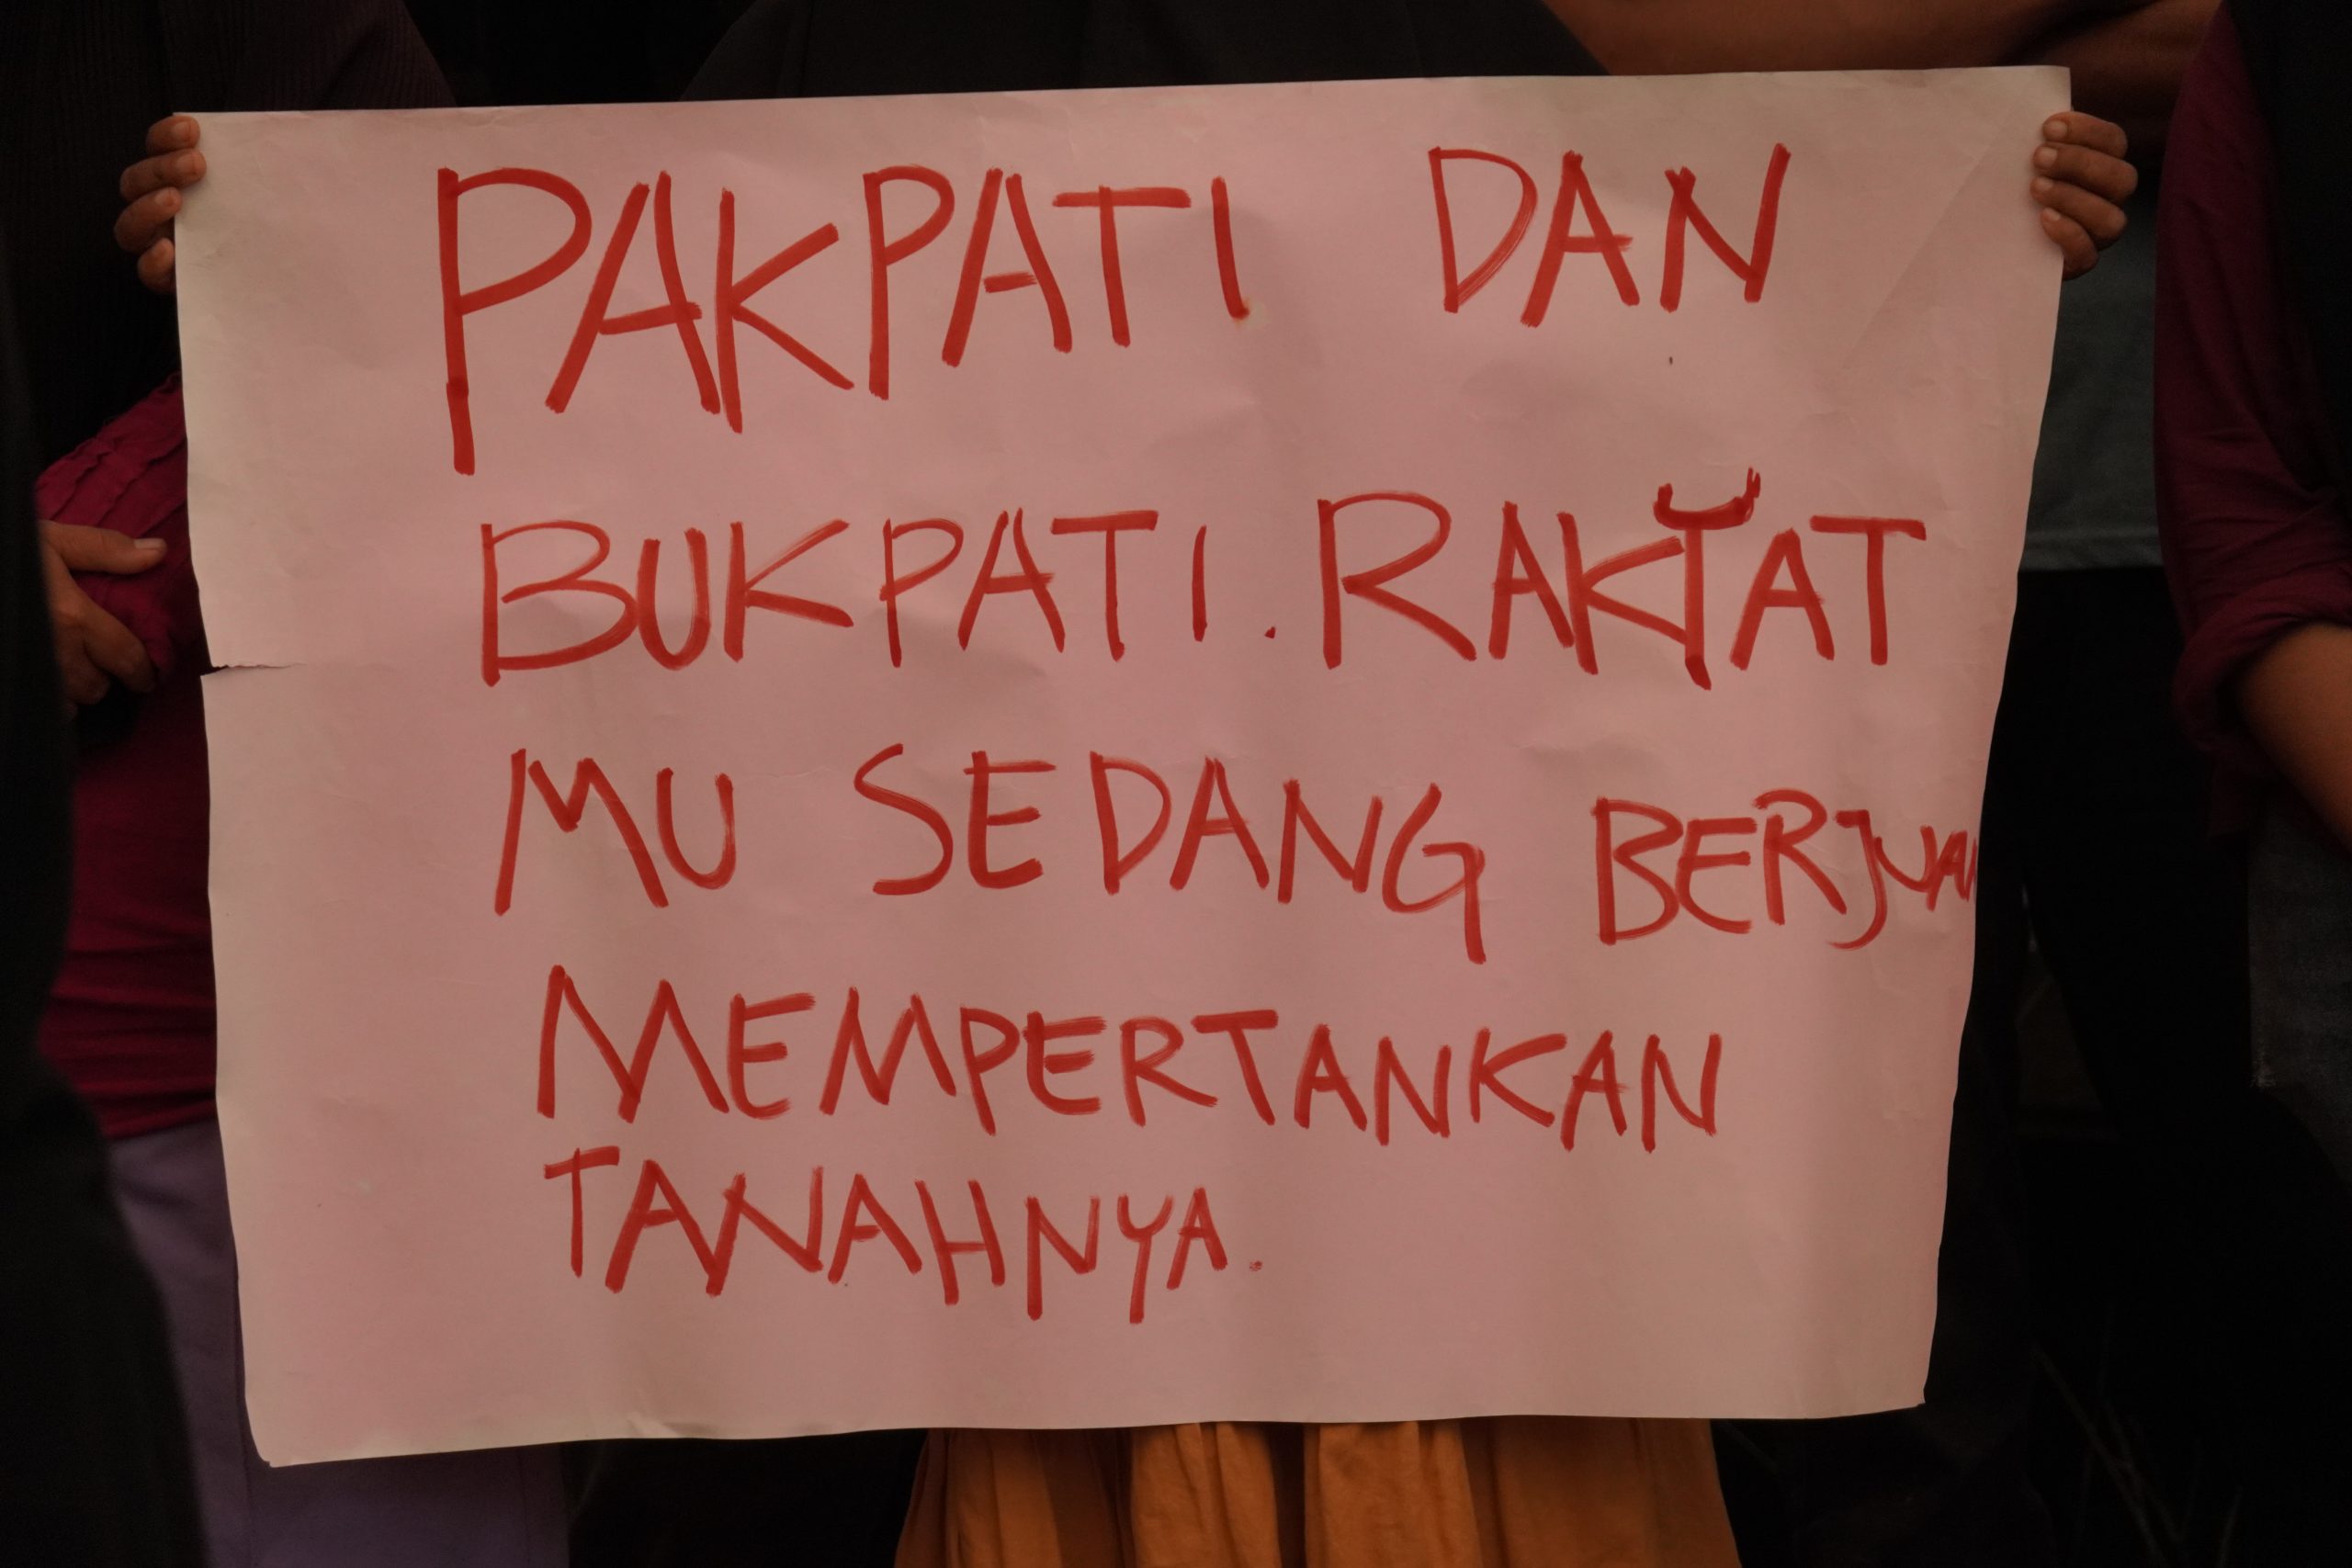 PAKPATI DAN
BUKPATI. RAKYAT
MU SEDANG BERJUAN
MEMPERTANKAN
TANAHNYA.